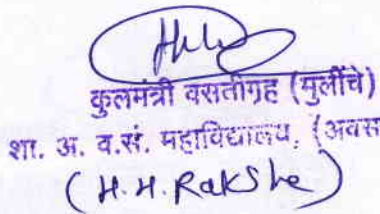 कुलमंत्री वसतीगृह (मुलींचे)
शा. अ. व.सं. महाविद्यालय, (अवस
(H.H. Rakshe)